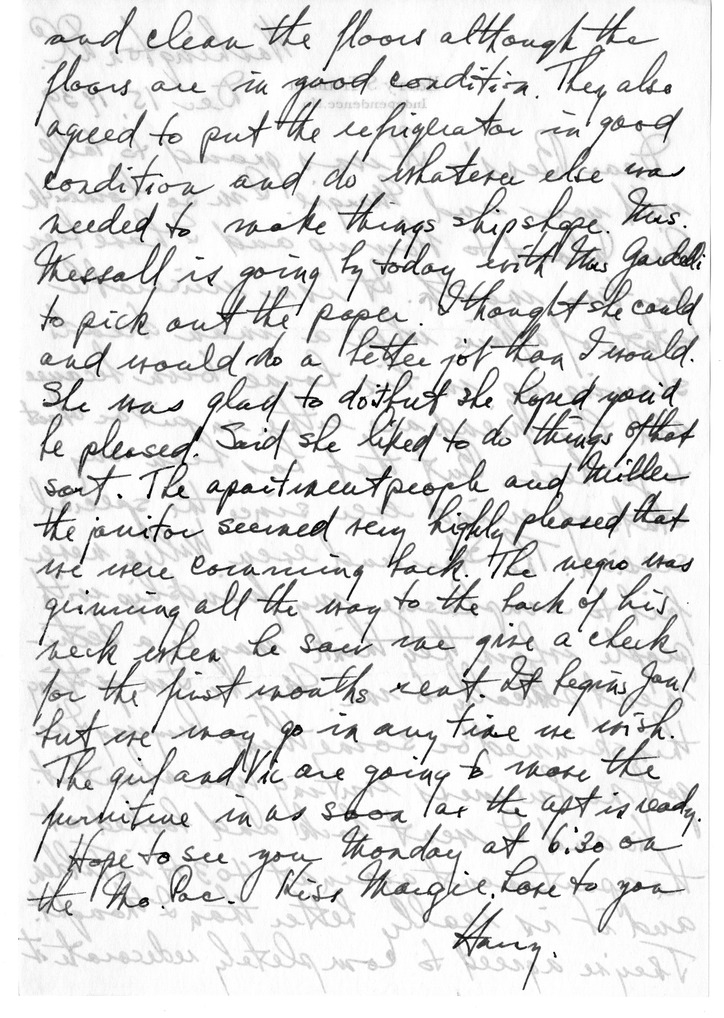 and clean the floors although the
floors are in good condition. They also
agreed to put the refrigerator in good
condition and do whatever else was
needed to make things shipshape. Mrs.
Messall is going by today with Mrs Gardelli
to pick out the paper. I thought she could
and would do a better job than I would.
She was glad to do it but she hoped you'd
be pleased. Said she liked to do things of that
sort. The apartment people and Miller
the janitor seemed very highly pleased that
we were comming back. The negro was
grinning all the way to the back of his
neck when he saw me give a check
for the first months rent. It begins Jan 1
but we may go in any time we wish.
The girl and Vic are going to move the
furnitive in as soon as the apt is ready.
Hope to see you Monday at 6:30 on
the Mo. Pac. Kiss Margie. Love to you
Harry.